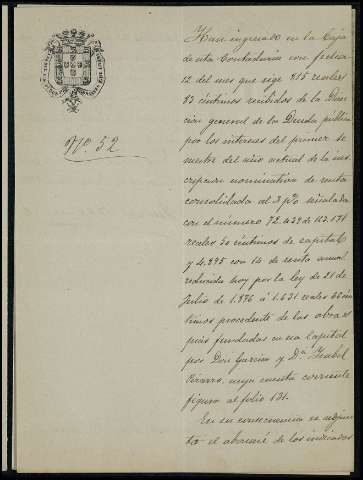 Nº. 52
Han ingresado en la Caja
de esta Contaduría con fecha
12 del mes que rige 815 reales
83 céntimos recibidos de la Direc
ción general de la Deuda pública
por los intereses del primer se
mestre del año actual de la ins
cripcion nominativa de renta
consolidada al 3 p% señalada
con el número 72.439 de 163.171
reales 50 céntimos de capital
y 4.895 con 14 de renta anual
reducida hoy por la ley de 21 de
Julio de 1.876 á 1.631 reales 66 cén
timos procedente de las obras
pias fundadas en esa Capital
por Don García y Dª Isabel
Pizarro, cuya cuenta corriente
figura al folio 131.
En su consecuencia se
el abonaré de los indicados